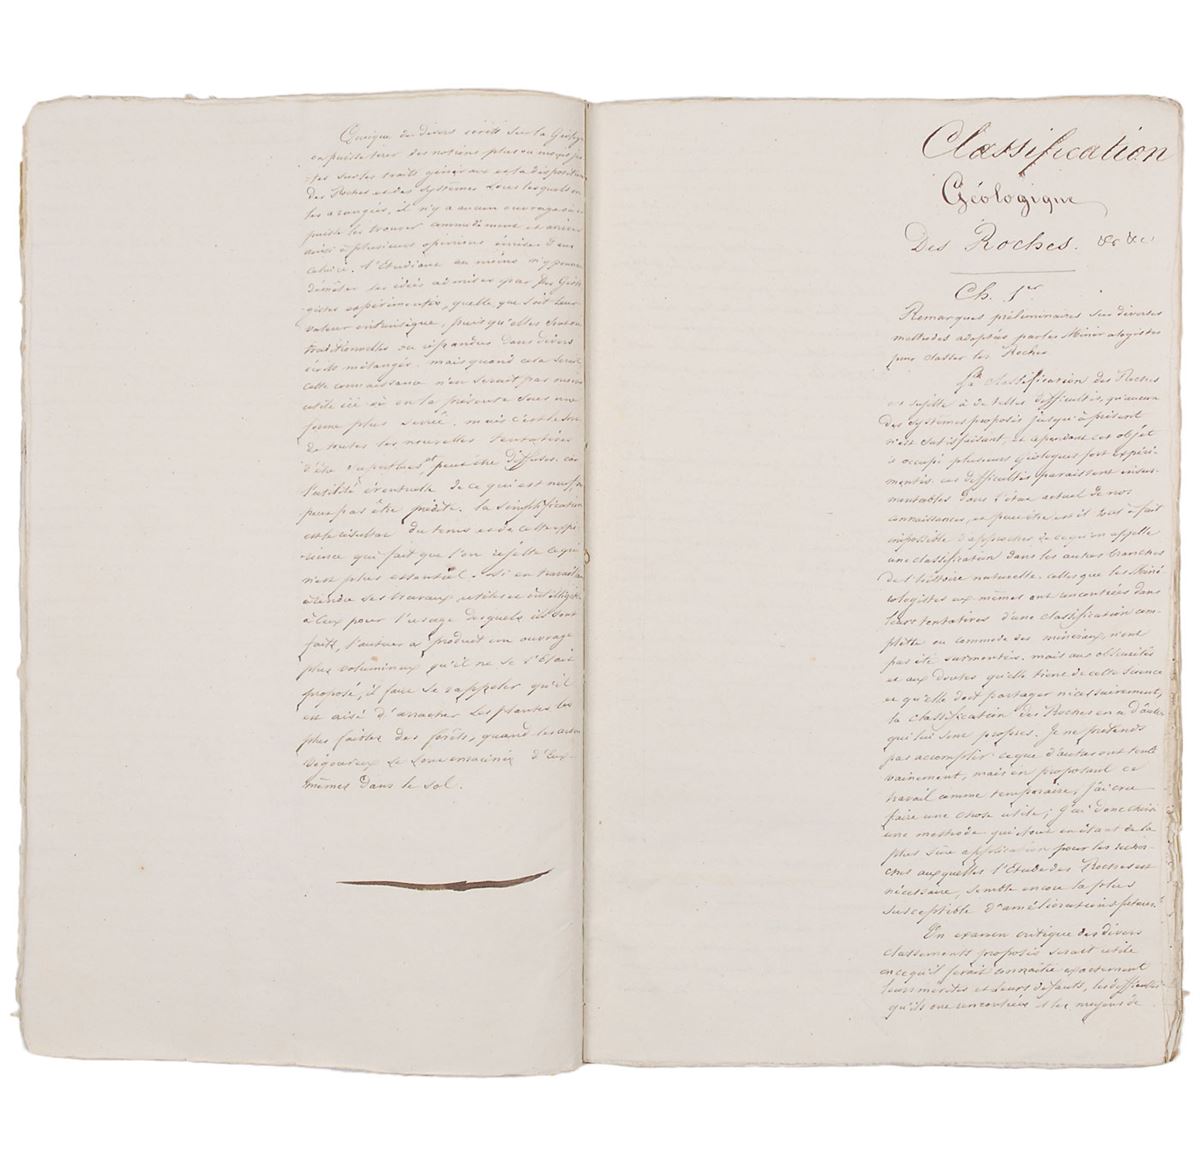 Quoique de divers écrits sur la Géologie
on puisse tirer des notions plus ou moins
sur les traits généraux et la disposition
des Roches et des systèmes sous lesquels on
les a rangés, il n'y a aucun ouvrage où
puisse les trouver commodément et
ainsi à plusieurs opinions émises dans
celui-ci. l'Etudiant au moins n'y pourra
démêler les idées admises par des Géol-
-ogistes expérimentés, quelle que soit leur
valeur intrinsèque, puisqu'elles sont ou
traditionnelles ou répandues dans divers
écrits mélangés. mais quand cela serait
cette connaissance n'en serait pas moins
utile ici où on la présente sous une
forme plus serrée. mais c'est le sort
de toutes les nouvelles tentatives
d'être imparfaites et peut être diffuses. car
l'utilité éventuelle de ce qui est neuf ne
peut pas être prédite. la simplification
est le résultat du tems et de cette expé-
rience qui fait que l'on rejette ce qui
n'est plus essentiel. si en travaillant
à rendre ses travaux utiles et intelligibles
à ceux pour l'usage desquels ils sont
faits, l'auteur a produit un ouvrage
plus volumineux qu'il ne se l'était
proposé, il faut se rappeler qu'il
est aisé d'arracher les plantes les
plus faibles des forêts, quand les arbres
vigoureux se sont enracinés d'eux-
-mêmes dans le sol.
Classification
Géologique
Des Roches. &c &c.
Ch. 1er
Remarques préliminaires sur diverses
méthodes adoptées par les Minéralogistes
pour classer les Roches
La classification des Roches
est sujette à de telles difficultés, qu'aucun
des systèmes proposés jusqu'à présent
n'est satisfaisant, et cependant cet objet
a occupé plusieurs Géologues fort expéri-
mentés. ces difficultés paraissent insur-
montables dans l'état actuel de nos
connaissances, et peut être est il tout à fait
impossible d'approcher de ce qu'on appelle
une classification dans les autres branches
de l'histoire naturelle. celles que les Miné-
ralogistes eux mêmes ont rencontrées dans
leurs tentatives d'une classification com-
plète ou commode des minéraux, n'ont
pas été surmontées. mais aux obscurités
et aux doutes qu'elle tient de cette science
et qu'elle doit partager nécessairement,
la classification des Roches en a d'autres
qui lui sont propres. Je ne prétends
pas accomplir ce que d'autres ont tenté
vainement, mais en proposant ce
travail comme temporaire, j'ai cru
faire une chose utile; j'ai donc choisi
une méthode qui tout en étant de la
plus sûre application pour les recher-
ches auxquelles l'Etude des Roches est
nécessaire, semble encore la plus
susceptible d'améliorations futures.
Un examen critique des divers
classements proposés serait utile
en ce qu'il ferait connaître exactement
leurs mérites et leurs défauts, les difficultés
qu'ils ont rencontrées et les moyens de